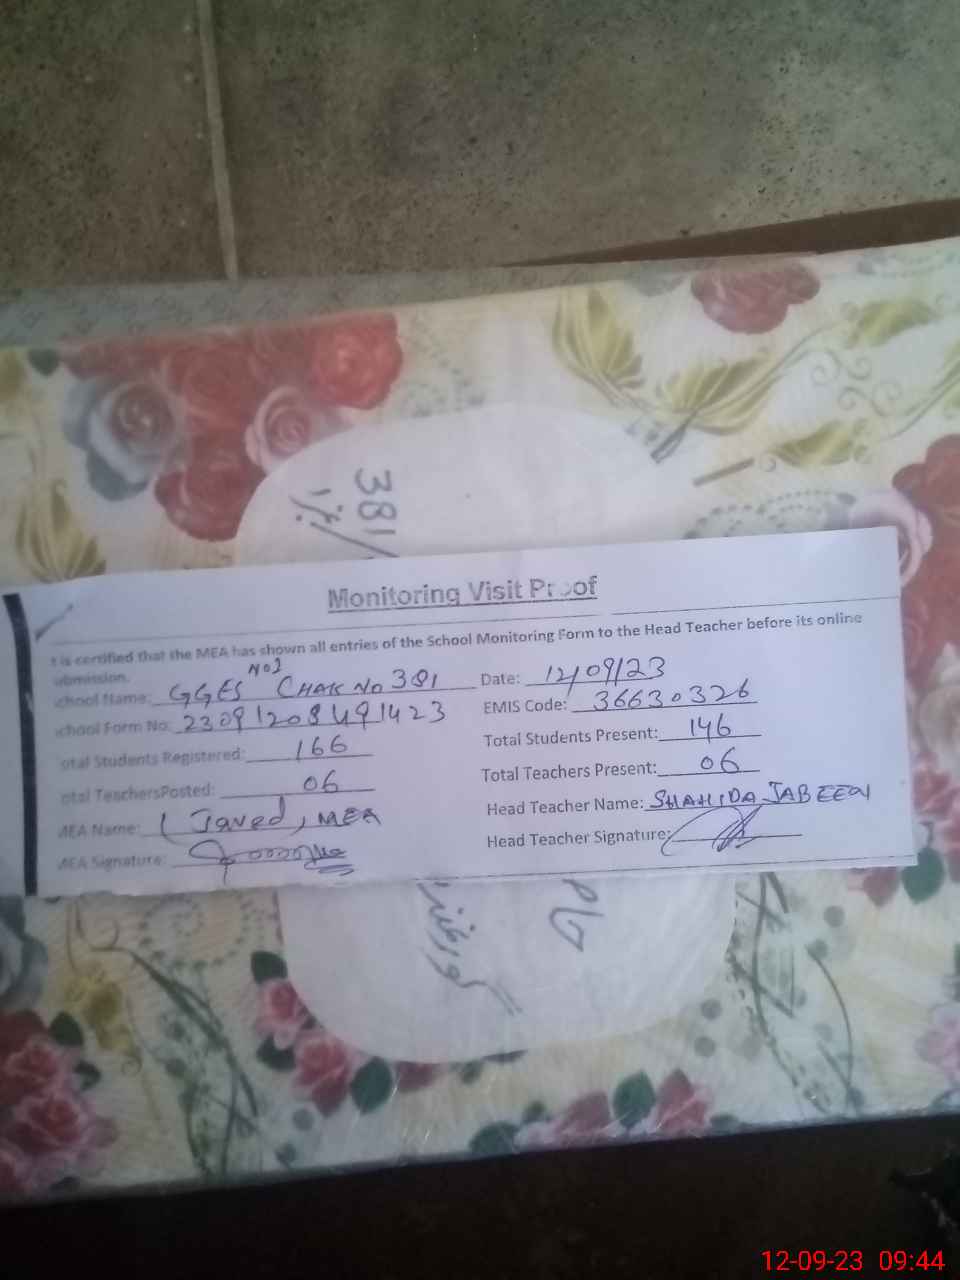 381/
Monitoring Visit Proof
t is certified that the MEA has shown all entries of the School Monitoring Form to the Head Teacher before its online
ubmission.
chool Name: GGES No2 CHAK No 381 Date: 12/09/23
chool Form No: 2309120849 1423 EMIS Code: 36630326
otal Students Registered: 166 Total Students Present: 146
otal TeachersPosted: 06 Total Teachers Present: 06
MEA Name: Javed, MEA Head Teacher Name: SHAHIDA JABEEN
MEA Signature: Head Teacher Signature:
گورنمنٹ
12-09-23 09:44